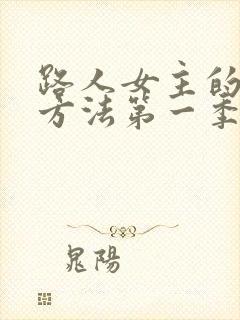 路人女主的
方法第一季
晁陽